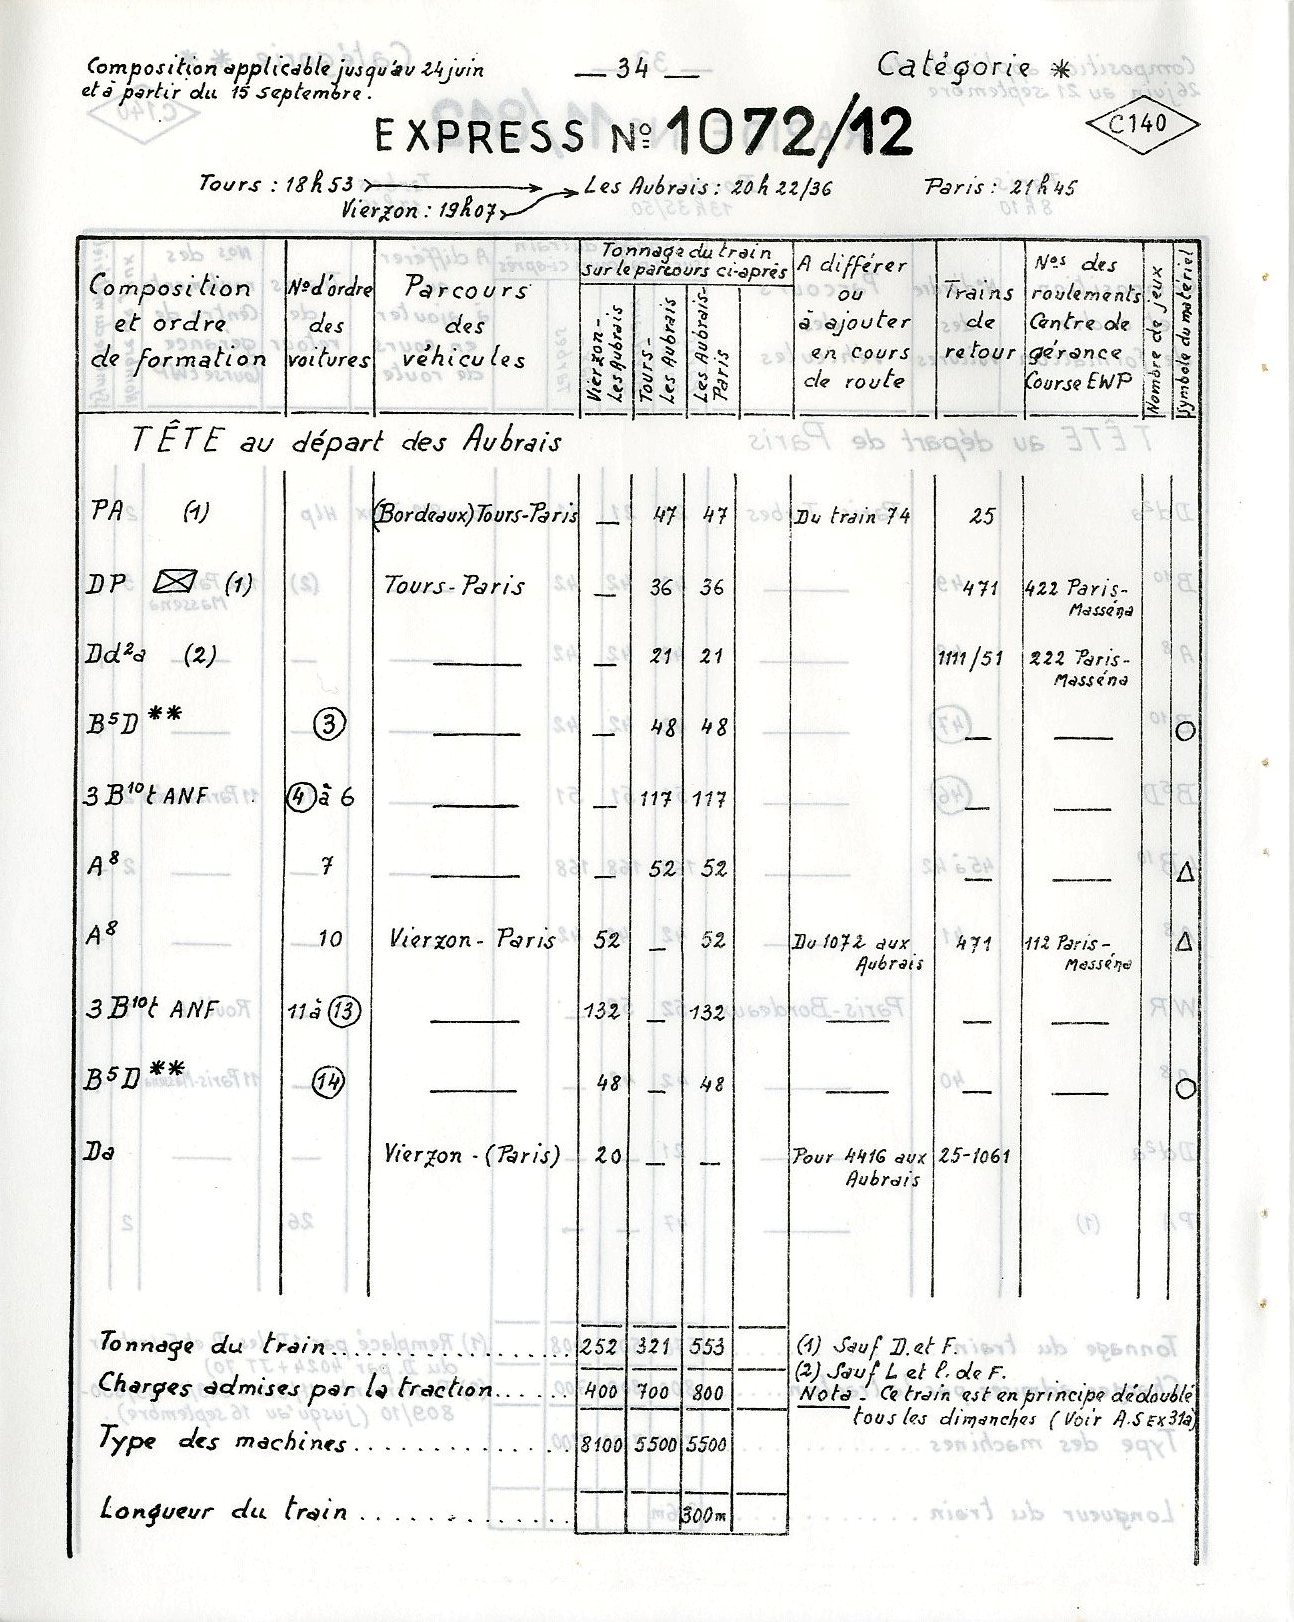 Composition applicable jusqu'au 24 juin
et à partir du 15 septembre.
— 34 —
Catégorie *
C140
EXPRESS No 1072/12
Tours : 18h53 Les Aubrais : 20h22/36 Paris : 21h45
Vierzon : 19h07
Composition et ordre de formation
No d'ordre des voitures
Parcours des véhicules
Tonnage du train sur le parcours ci-après
Vierzon - Les Aubrais
Tours - Les Aubrais
Les Aubrais - Paris
A différer ou à ajouter en cours de route
Trains de retour
Nos des roulements Centre de gérance Course EWP
Nombre de jeux
Symbole du matériel
TÊTE au départ des Aubrais
PA (1) (Bordeaux) Tours-Paris — 47 47 Du train 74 25
DP (1) Tours-Paris — 36 36 471 422 Paris-Masséna
Dd²a (2) — — 21 21 1111/51 222 Paris-Masséna
B⁵D ** 3 — — 48 48 — — ○
3 B¹⁰t ANF 4 à 6 — — 117 117 — —
A⁸ 7 — — 52 52 — — △
A⁸ 10 Vierzon - Paris 52 — 52 Du 1072 aux Aubrais 471 112 Paris-Masséna △
3 B¹⁰t ANF 11 à 13 — 132 — 132 — — —
B⁵D ** 14 — 48 — 48 — — — ○
Da Vierzon - (Paris) 20 — — Pour 4416 aux Aubrais 25-1061
Tonnage du train 252 321 553
Charges admises par la traction 400 700 800
Type des machines 8100 5500 5500
Longueur du train 300m
(1) Sauf D. et F.
(2) Sauf L et l. de F.
Nota - Ce train est en principe dédoublé
tous les dimanches (Voir A.S Ex 31a)